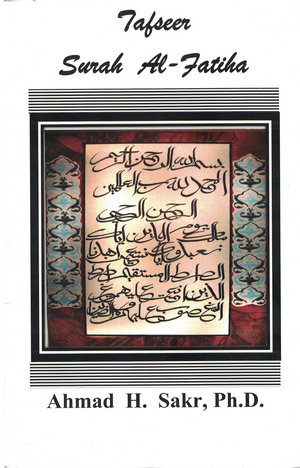 Tafseer
Surah Al-Fatiha
بسم الله الرحمن الرحيم
الحمد لله رب العالمين
الرحمن الرحيم
ملك يوم الدين إياك
نعبد وإياك نستعين اهدنا
الصراط المستقيم صراط
الذين أنعمت عليهم غير
المغضوب عليهم ولا الضالين
Ahmad H. Sakr, Ph.D.